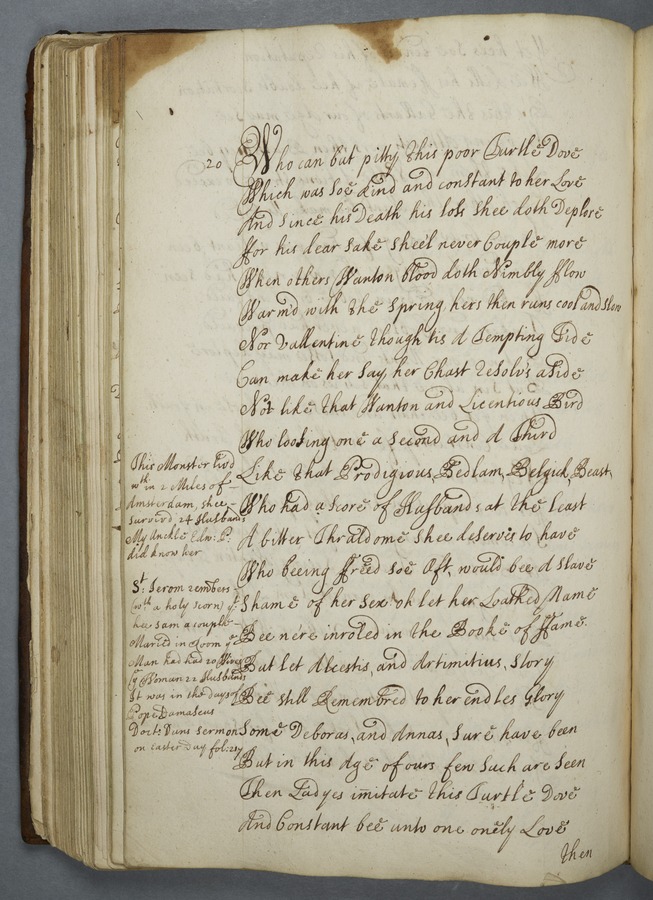 20 Who can but pitty this poor Turtle Dove
Which was soe kind and constant to her Love
And since his Death his loss shee doth Deplore
ffor his dear sake shee'l never Couple more
When others Wanton blood doth Nimbly fflow
Warm'd with the Spring, hers then runs cool and slow
Nor Vallentine though tis a Tempting Tide
Can make her say, her Chast resolv's aside
Not like that Wanton and Licentious Bird
Who loosing one a second and a Third
Like that Prodigious, Bedlam, Belgick, Beast
Who had a score of Husbands at the least
A bitter Thraldome shee deserves to have
Who beeing ffreed soe Oft, would bee a slave
Shame of her Sex oh let her Loathed Name
Bee ne're inroled in the Booke of ffame
But let Alcestis, and Artimitius, Story
Bee still Remembred to her endles Glory
Some Deboras, and Annas, sure have been
But in this Age of ours few such are seen
Then Ladyes imitate this Turtle Dove
And Constant bee unto one onely Love
then
This Monster liv'd
wth in 2 Miles of
Amsterdam, shee
survived, 24 Husbands
My Unckle Edw: P:
did know her
St: Jerom rembers
(wth a holy scorn) yt
hee saw a couple
Married in Room ye
Man had had 20 Wives
ye Woman 22 Husbands
It was in the days of
Pope Damaseus
Doctr: Duns sermon
on Easter Day fol: 217